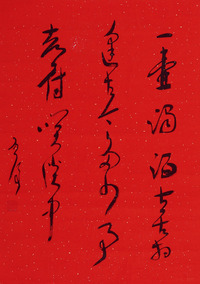 一壺濁酒喜相
逢古今多少事
都付笑談中